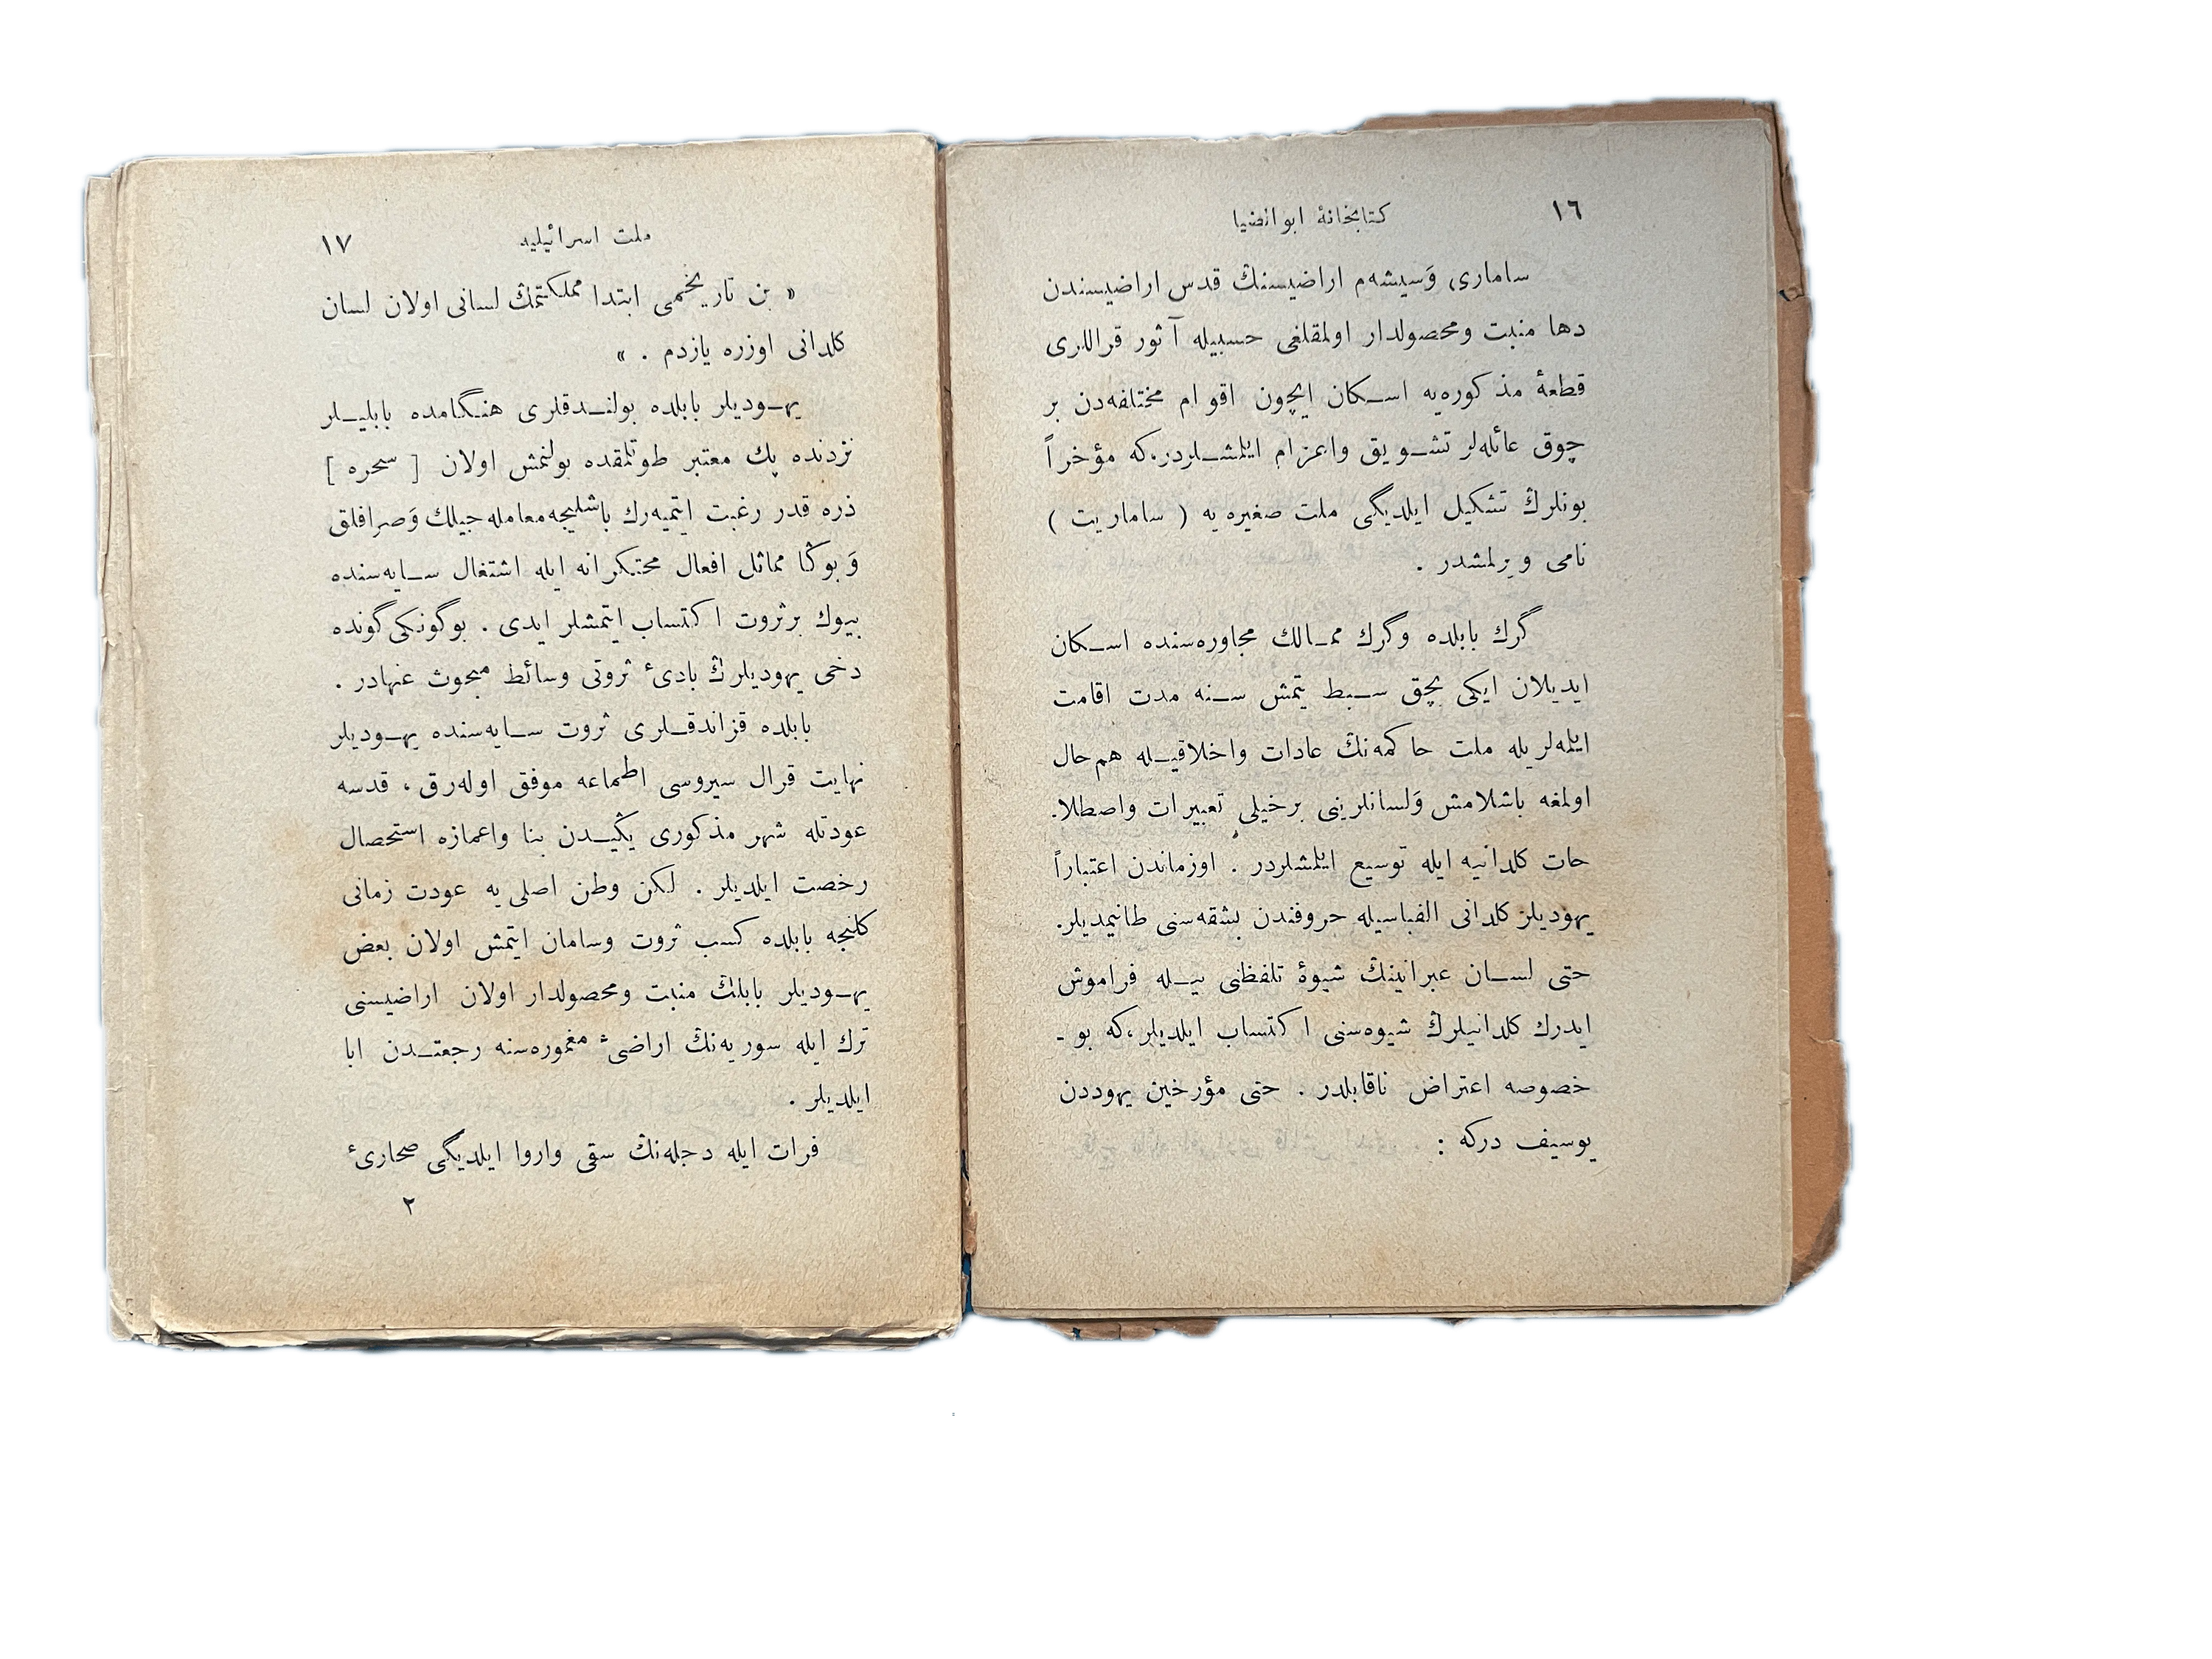 ١٦
كتابخانهٔ ابوالضيا
سامارى وَسيشه‌م اراضيسنڭ قدس اراضيسندن
دها منبت ومحصولدار اولمقلغى حسبيله آثور قراللرى
قطعهٔ مذكوره‌يه اسـكان ايچون اقوام مختلفه‌دن بر
چوق عائله‌لر تشـويق واعزام ايلمشـلردر،كه مؤخراً
بونلرڭ تشكيل ايلديگى ملت صغيره يه ( ساماريت )
نامى ويرلمشدر .
گرك بابلده وگرك ممـالك مجاوره‌سنده اسـكان
ايديلان ايكى بچق سـبط يتمش سـنه مدت اقامت
ايلمه‌لريله ملت حاكمه‌نڭ عادات واخلاقيـله هم‌حال
اولمغه باشلامش وَلسانلرينى برخيلى تعبيرات واصطلا.
حات كلدانيه ايله توسيع ايلمشلردر . اوزماندن اعتباراً
يهوديلر كلدانى الفباسيله حروفندن بشقه‌سنى طانيمديلر.
حتى لسـان عبرانينڭ شيوهٔ تلفظنى بيـله فراموش
ايدرك كلدانيلرڭ شيوه‌سنى اكتساب ايلديلر،كه بو -
خصوصه اعتراض ناقابلدر . حتى مؤرخين يهوددن
يوسيف دركه :
ملت اسرائيليه
١٧
« بن تاريخمى ابتدا مملكتمڭ لسانى اولان لسان
كلدانى اوزره يازدم . »
يهـوديلر بابلده بولنـدقلرى هنگامده بابليـلر
نزدنده پك معتبر طوتلمقده بولنمش اولان [ سحره ]
ذره قدر رغبت ايتميه‌رك باشليجه‌معامله‌جيلك وَصرافلق
وَ بوڭا مماثل افعال محتكرانه ايله اشتغال سـايه‌سنده
بيوك برثروت اكتساب ايتمشلر ايدى . بوگونكى گونده
دخى يهوديلرڭ بادىٔ ثروتى وسائط مبحوث عنهادر .
بابلده قزاندقـلرى ثروت سـايه‌سنده يهـوديلر
نهايت قرال سيروسى اطماعه موفق اوله‌رق ، قدسه
عودتله شهر مذكورى يڭيـدن بنا واعمازه استحصال
رخصت ايلديلر . لكن وطن اصلى يه عودت زمانى
كلنجه بابلده كسب ثروت وسامان ايتمش اولان بعض
يهـوديلر بابلڭ منبت ومحصولدار اولان اراضيسنى
ترك ايله سوريه‌نڭ اراضىٔ مغموره‌سنه رجعتـدن ابا
ايلديلر .
فرات ايله دجله‌نڭ سقى واروا ايلديگى صحارىٔ
٢